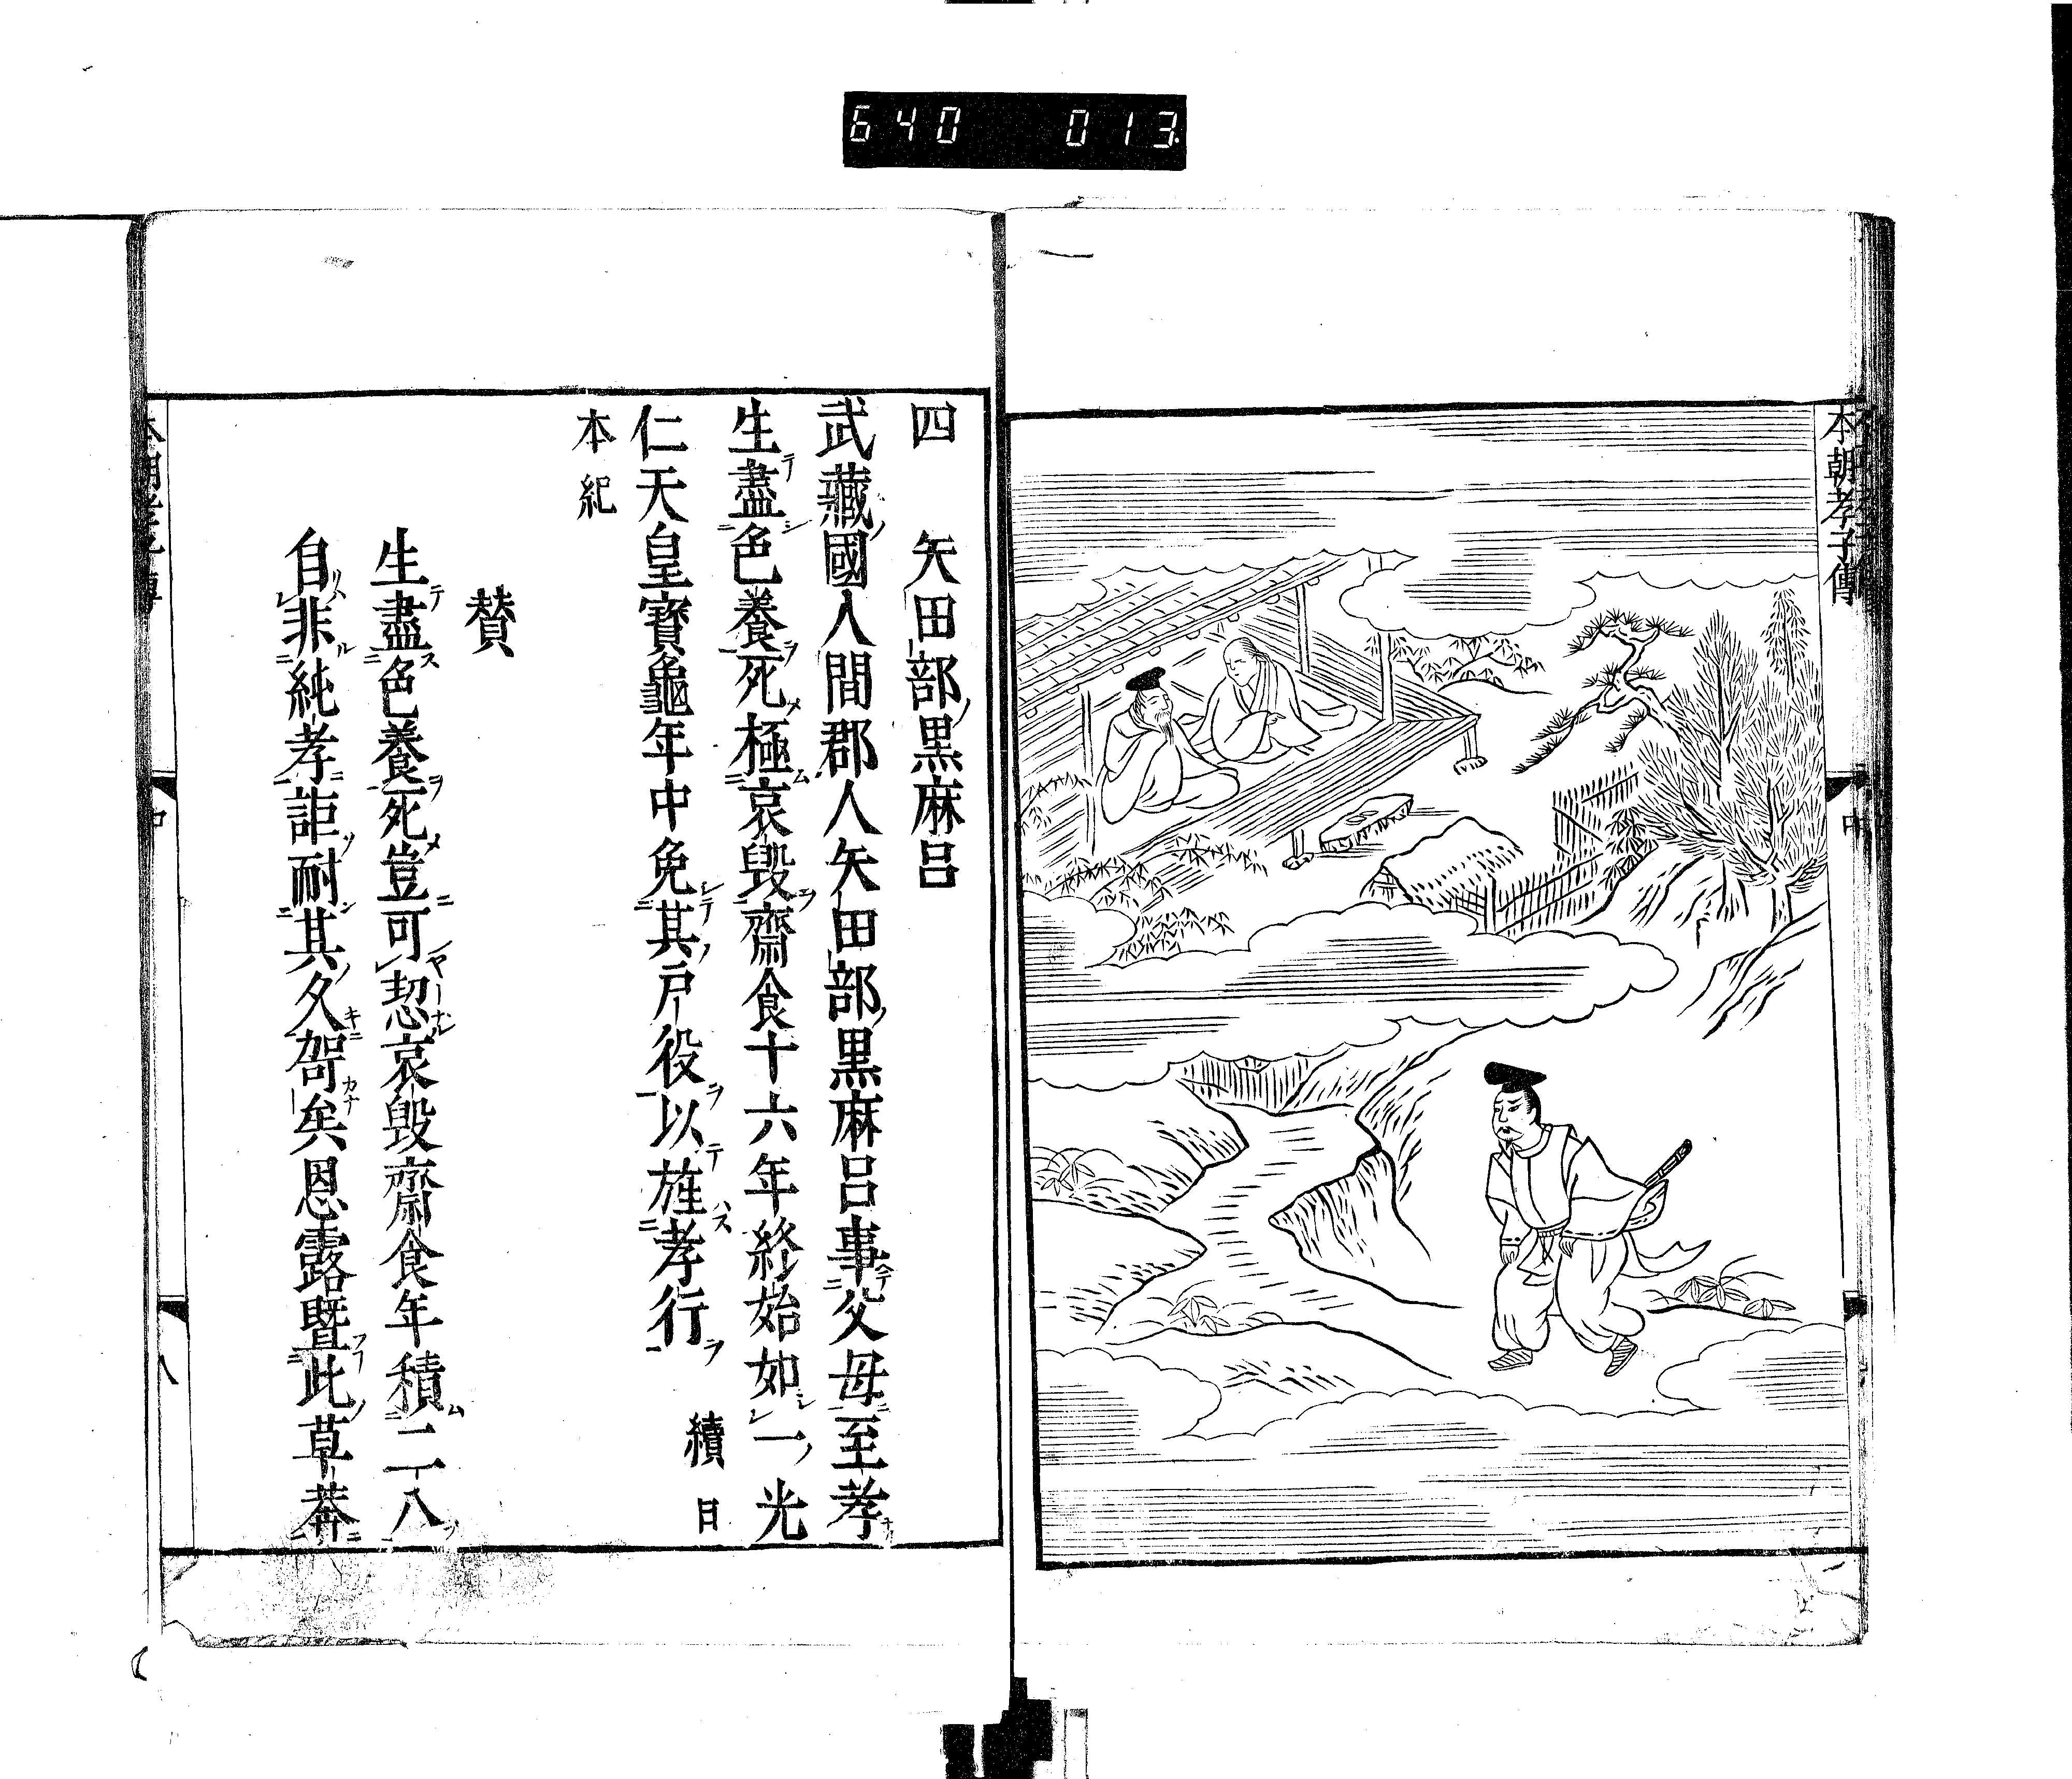 640 013
本朝孝子傳
中
四 矢田部黒麻呂
武藏國入間郡人矢田部黒麻呂事父母至孝
生盡色養死極哀毀齋食十六年終始如一光
仁天皇寶龜年中免其戸役以旌孝行 續日
本紀
賛
生盡色養死豈可恝哀毀齋食年積二八
自非純孝詎耐其久哿矣恩露曁此草莽
本朝孝子傳
中
八